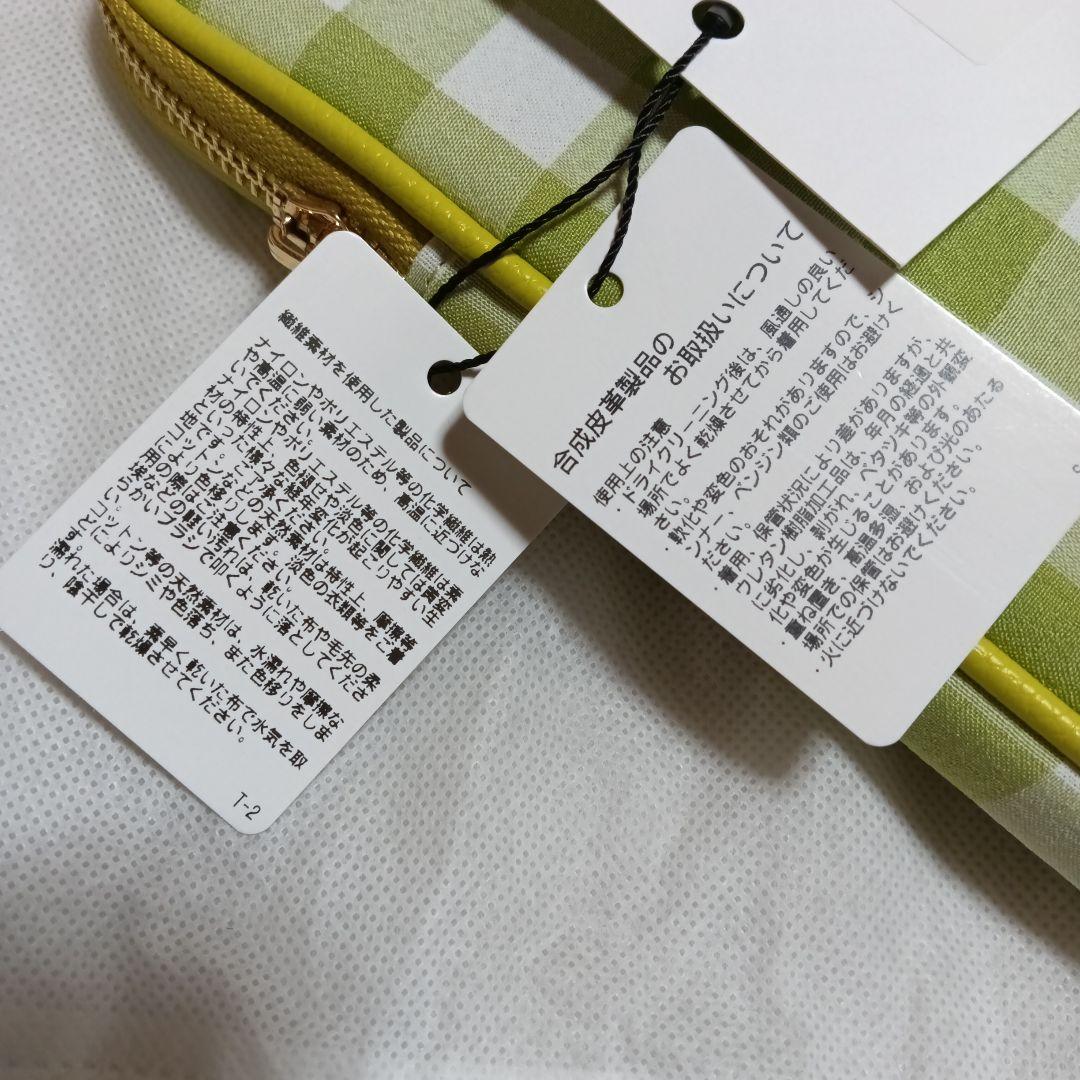 繊維素材を使用した製品について
ナイロンやポリエステル等の化学繊維は熱
や高温に弱い素材のため、高温に近づけな
いでください。
ナイロンやポリエステル等の化学繊維は素
材の特性上、色褪せや淡色に関しては黄変
といった様々な経年変化が起こりやすい生
地です。ご了承ください。
コットンなどの天然素材は特性上、摩擦等
により色移りします。淡色の衣類等をご着
用の際はご注意ください。
埃などの軽い汚れは、乾いた布や毛先の柔
らかいブラシで叩くように落としてくださ
い。
コットン等の天然素材は、水濡れや摩擦な
どによりシミや色落ち、また色移りをしま
す。
濡れた場合は、素早く乾いた布で水気を取
り、陰干しで乾燥させてください。
T-2
合成皮革製品の
お取扱いについて
使用上の注意
・ドライクリーニング後は、風通しの良い
場所でよく乾燥させてから着用してくだ
さい。
・軟化や変色のおそれがありますので、シ
ンナー、ベンジン類のご使用はお避けく
ださい。
・着用、保管状況により差がありますが、
ウレタン樹脂加工品は、年月の経過と共
に劣化し、剥がれ、ベタツキ等の外観変
化や変色が生じることがあります。
・重ね置き、高温多湿、および光のあたる
場所での保管はお避けください。
・火に近づけないでください。